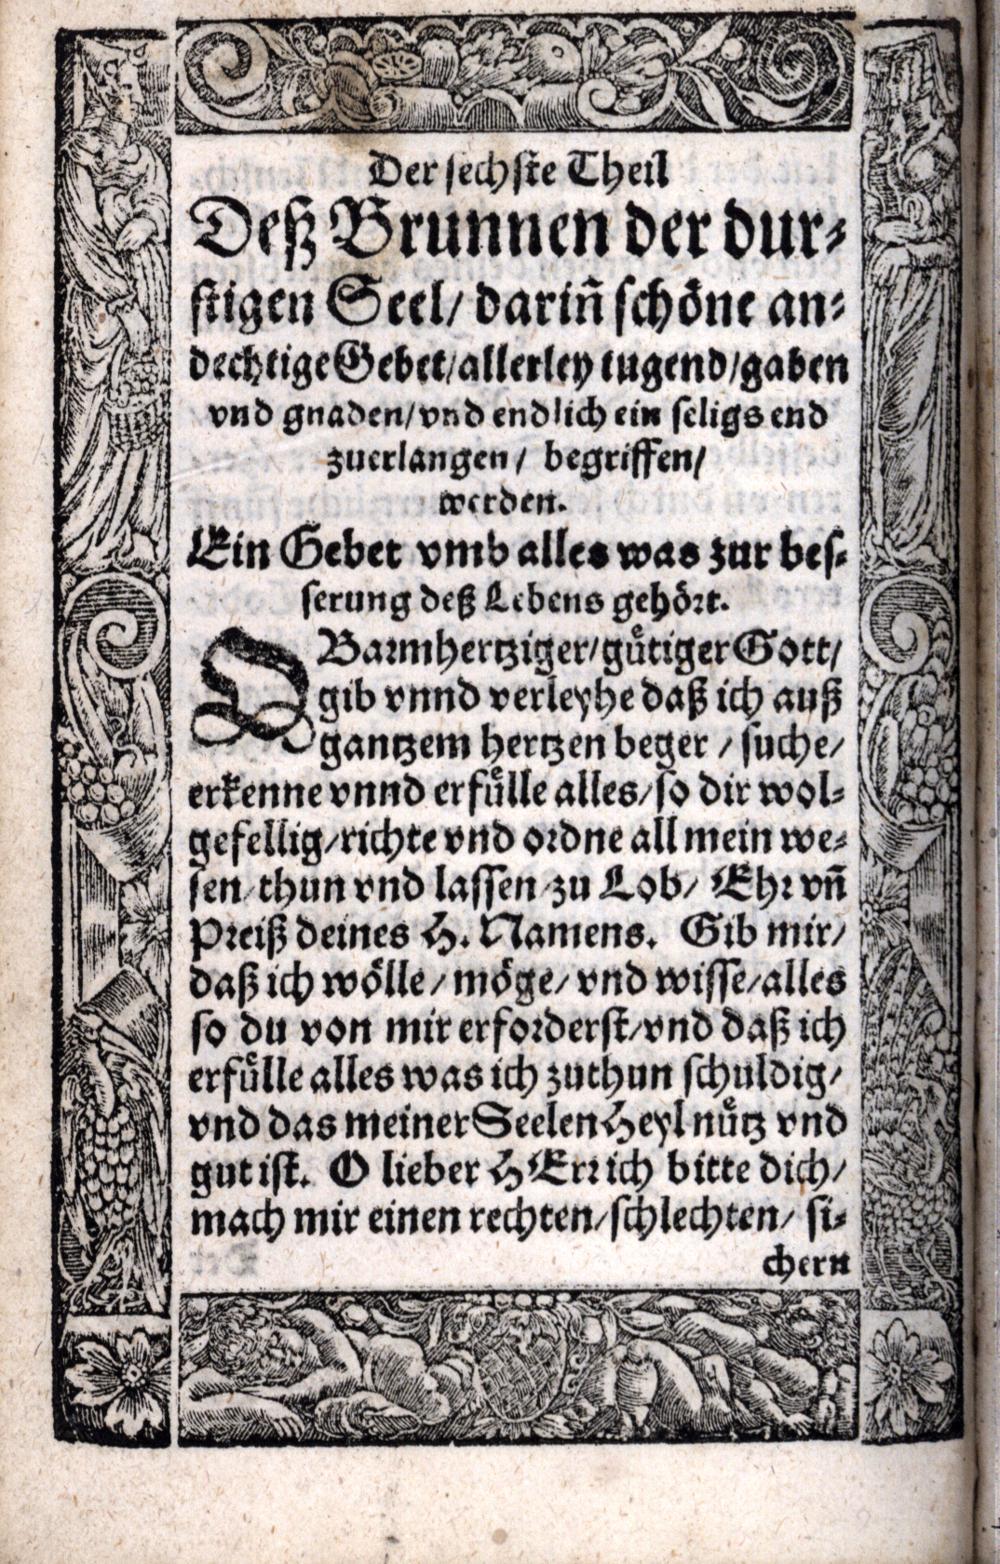 Der sechste Theil
Deß Brunnen der dur⸗
stigen Seel/ dariñ schöne an⸗
dechtige Gebet/ allerley tugend/ gaben
vnd gnaden/ vnd endlich ein seligs end
zuerlangen/ begriffen/
werden.
Ein Gebet vmb alles was zur bes⸗
serung deß Lebens gehört.
O Barmhertziger/ gütiger Gott/
gib vnnd verleyhe daß ich auß
gantzem hertzen beger / suche/
erkenne vnnd erfülle alles/ so dir wol⸗
gefellig/ richte vnd ordne all mein we⸗
sen/ thun vnd lassen/ zu Lob/ Ehr vñ
Preiß deines H. Namens. Gib mir/
daß ich wölle/ möge/ vnd wisse/ alles
so du von mir erforderst/ vnd daß ich
erfülle alles was ich zuthun schuldig/
vnd das meiner Seelen Heyl nütz vnd
gut ist. O lieber HErr ich bitte dich/
mach mir einen rechten/ schlechten/ si⸗
chern